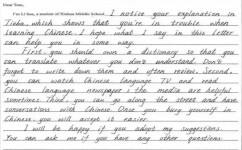 Dear Tom,
I'm Li Hua, a student of Xinhua Middle School. I notice your explanation in
Tieba which shows that you're in trouble when
learning Chinese. I hope what I say in this letter
can help you in some way.
First, you should own a dictionary so that you
can translate whatever you don't understand. Don't
forget to write down them and often review. Second,
you can watch Chinese language TV and read
Chinese language newspaper; the media are helpful
sometimes. Third, you can go along the street and have
conversations with Chinese. Once you busy yourself in
Chinese, you will accept it easier.
I will be happy if you adopt my suggestions.
You can ask me if you have any other questions.